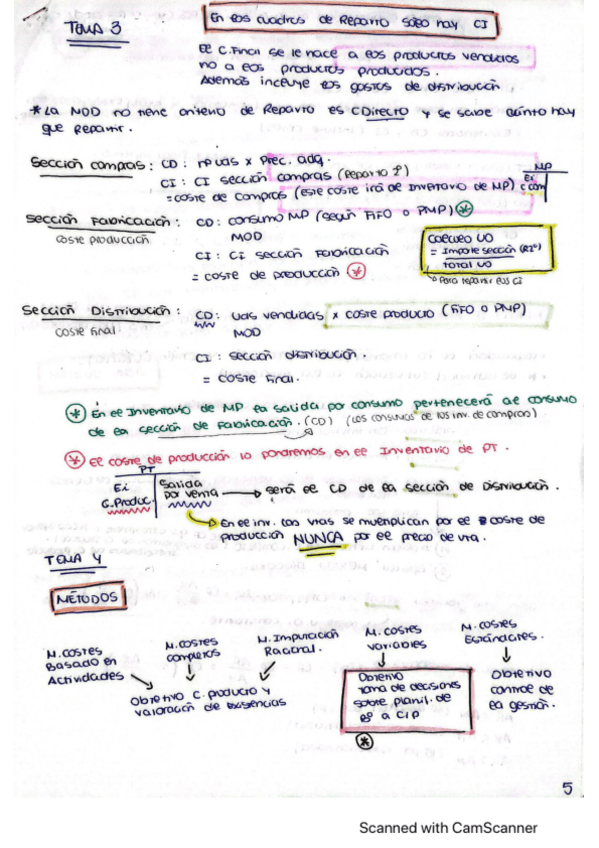 TEMA 3
En los cuadros de Reparto solo hay CI
El C.Final se le hace a los productos vendidos
no a los productos producidos.
Además incluye los gastos de distribución
* La MOD no tiene criterio de Reparto es CDirecto y se sabe cuánto hay
que repartir.
Sección compras: CD: MP uds x Prec. adq.
CI: CI sección compras (Reparto 2º)
= coste de compras (este coste irá de Inventario de MP)
MP
Ei
Sección Fabricación: CD: consumo MP (según FIFO o PMP) *
coste producción
MOD
CI: CI sección Fabricación
= coste de producción *
Cálculo UO
= Importe sección (R2º)
Total UO
Para repartir los CI
Sección Distribución: CD: uds vendidas x coste producto (FIFO o PMP)
coste final
MOD
CI: sección distribución.
= coste final.
* En el Inventario de MP la salida por consumo pertenecerá al consumo
de la sección de Fabricación. (CD) (Los consumos de los inv. de compras)
* El coste de producción lo pondremos en el Inventario de PT.
PT
Ei
C.Produc.
Salida
por venta
será el CD de la sección de Distribución.
En el inv. las vtas se multiplican por el coste de
producción NUNCA por el precio de vta.
TEMA 4
MÉTODOS
M. costes
Basado en
Actividades
M. costes
completos
M. Imputación
Racional.
M. costes
variables
M. costes
Estándares.
Objetivo C. producto y
valoración de existencias
Objetivo
toma de decisiones
sobre planif. de
Rº a C/P
*
Objetivo
control de
la gestión.
5
Scanned with CamScanner